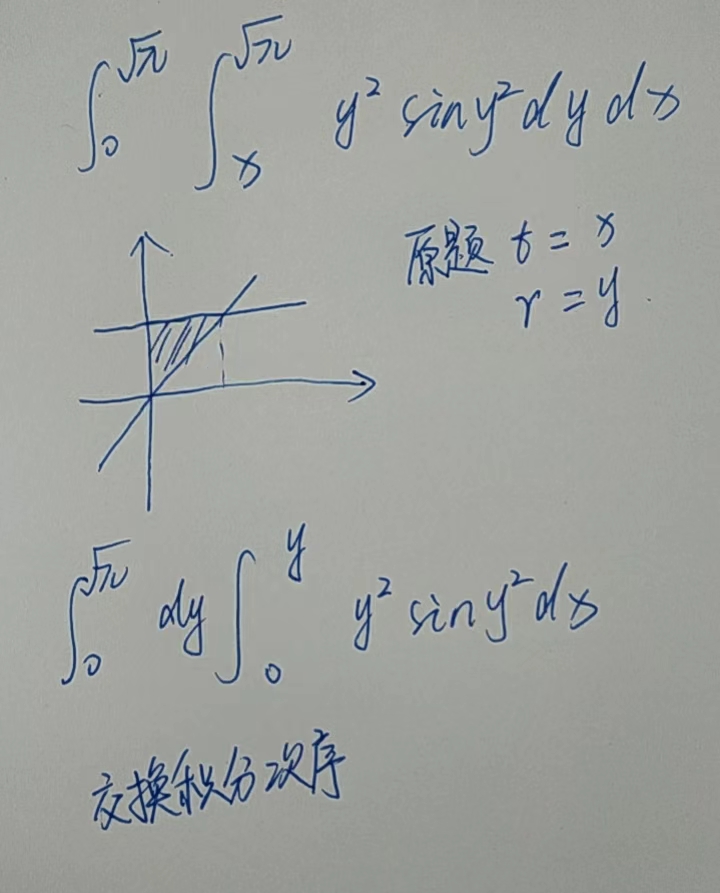 ∫₀^√π ∫ₓ^√π y² sin y² dy dx
原题 t = x
r = y.
∫₀^√π dy ∫₀^y y² sin y² dx
交换积分次序